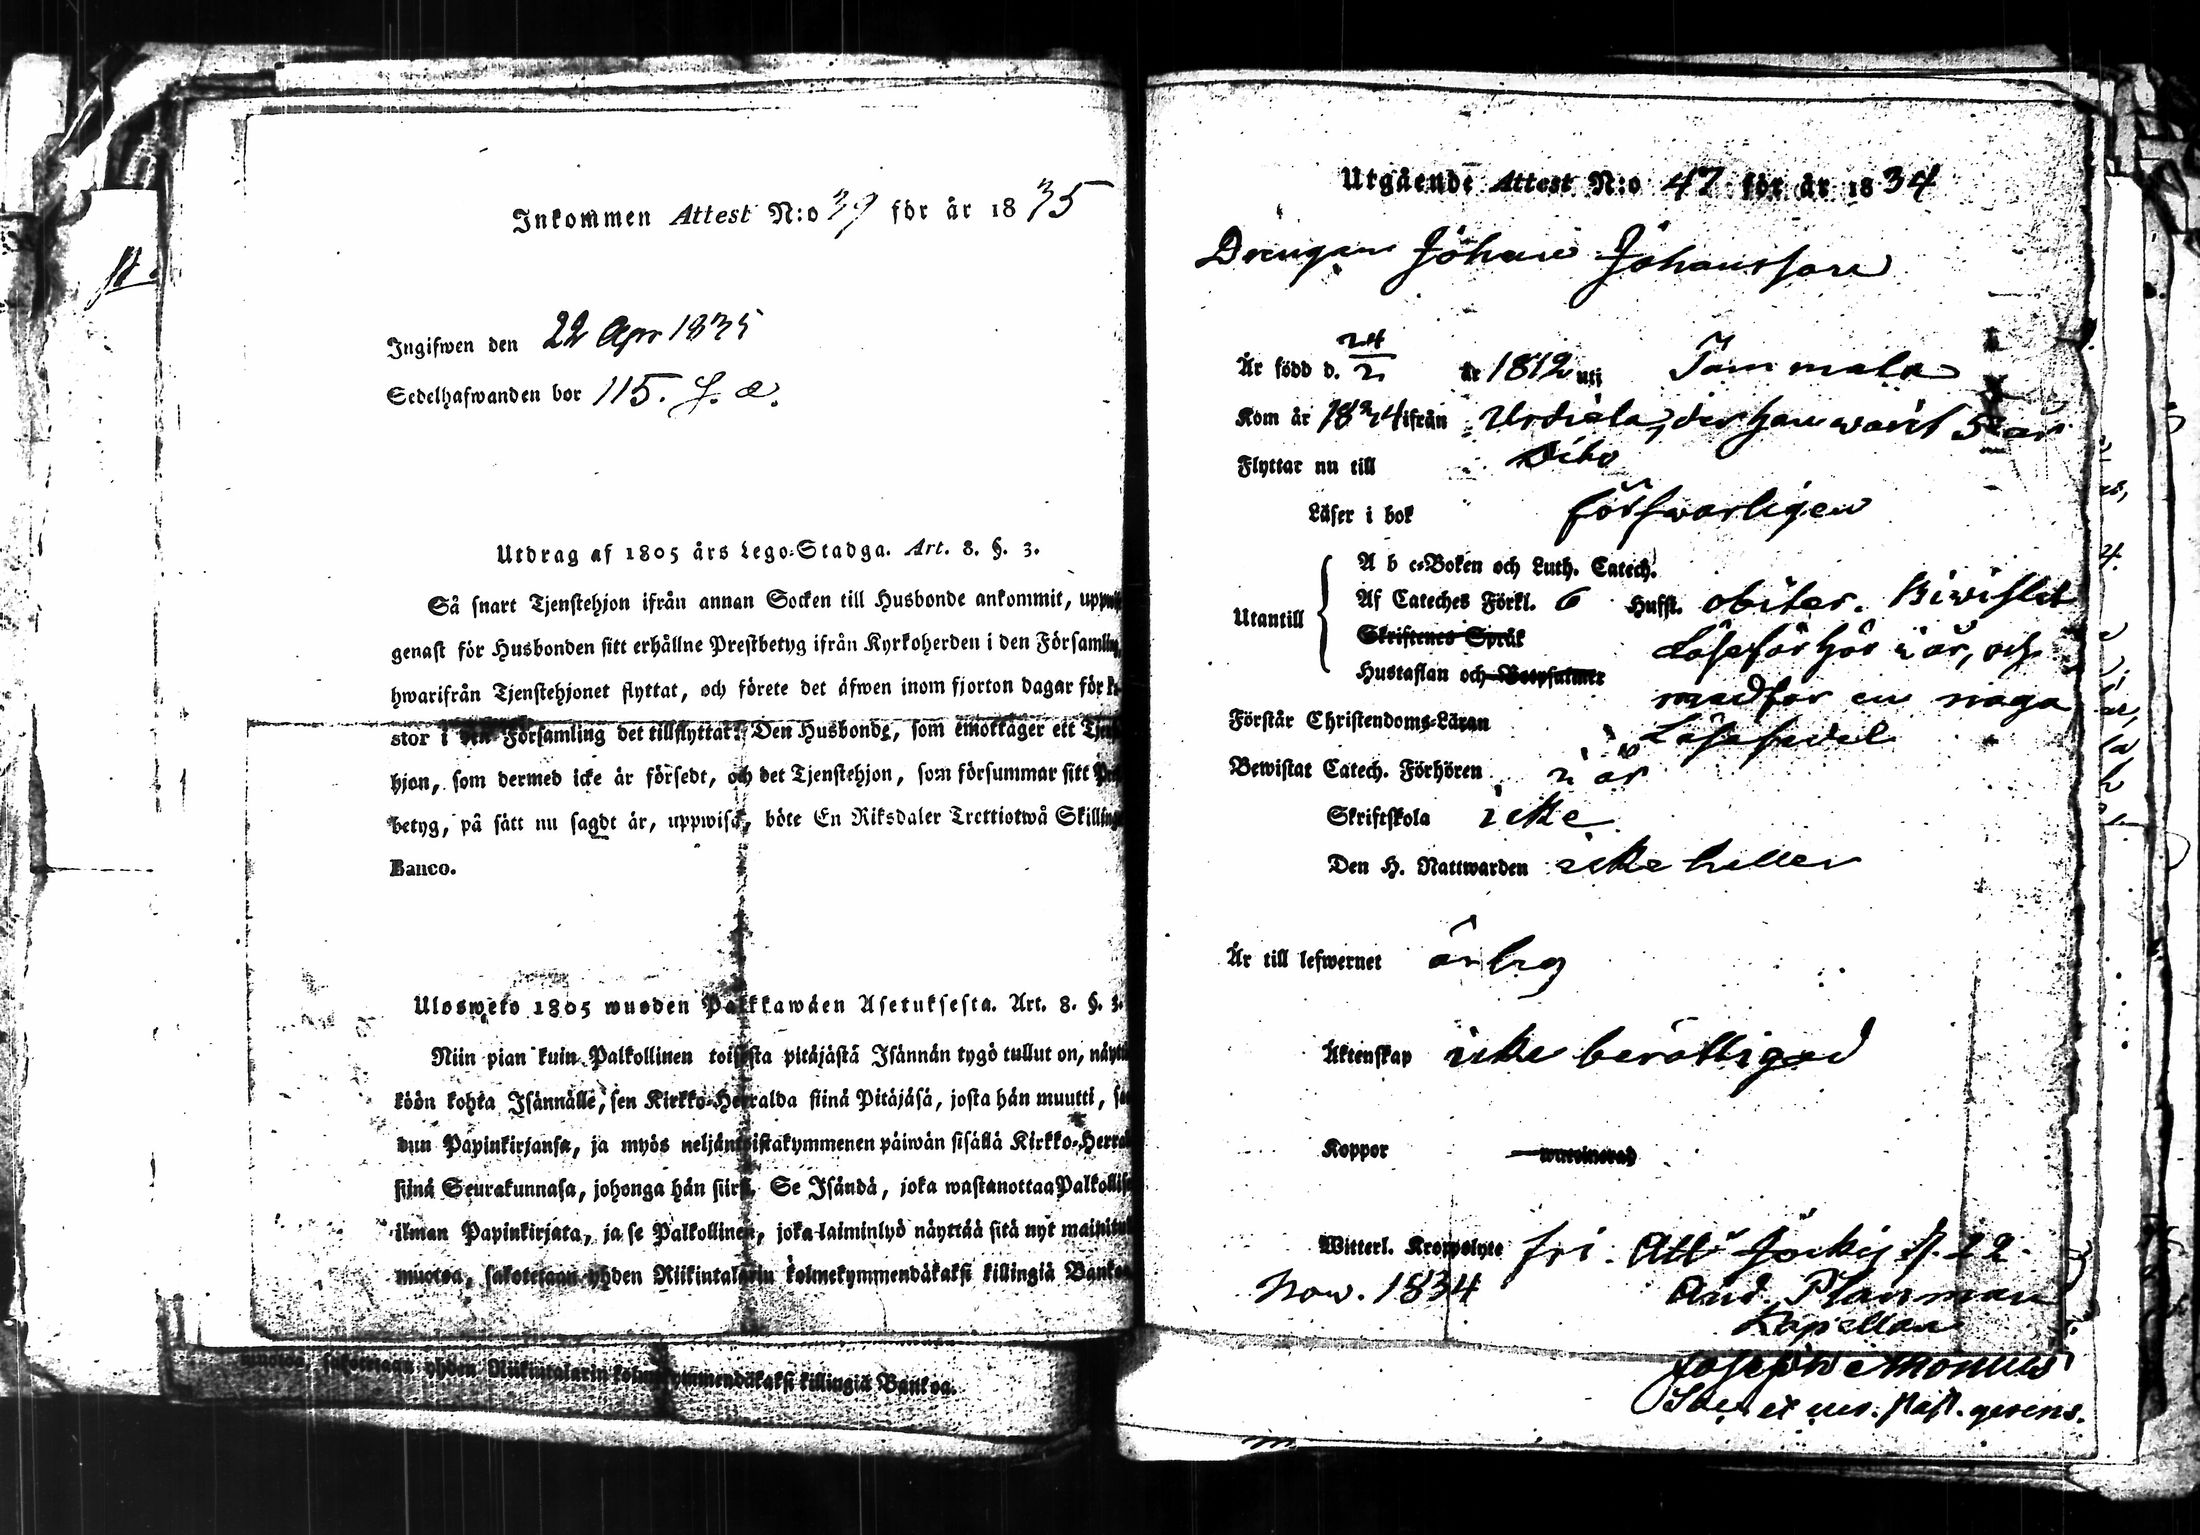 Inkommen Attest N:o 39 för år 1835
Ingifwen den 22 Apr 1835
Sedelhafwanden bor 115. f. æ.
Utdrag af 1805 års Lego-Stadga. Art. 8. §. 3.
Så snart Tjenstehjon ifrån annan Socken till Husbonde ankommit,
genast för Husbonden sitt erhållne Prestbetyg ifrån Kyrkoherden i den
hwarifrån Tjenstehjonet flyttat, och förete det äfwen inom fjorton dagar för
stor i den Församling det tillflyttat. Den Husbonde, som emottager ett
hjon, som dermed icke är försedt, och det Tjenstehjon, som försummar sitt
betyg, på sätt nu sagdt är, uppwisa, böte En Riksdaler Trettiotwå
Banco.
Ulosweto 1805 wuoden Palkkawäen Asetuksesta. Art. 8. §. 3.
Niin pian kuin Palkollinen toisesta pitäjästä Isännän tygö tullut on,
köön kohta Isännälle, sen Kirkko-Herralda siinä Pitäjäsä, josta hän muutti,
dun Papinkirjansa, ja myös neljäntoistakymmenen päiwän sisällä
siinä Seurakunnasa, johonga hän siirsi. Se Isändä, joka wastanottaa
ilman Papinkirjata, ja se Palkollinen, joka laiminlyö näyttää sitä nyt
muotoa, sakotetaan yhden Riikintalarin kolmekymmendäkaksi killingiä
muotoa, sakotetaan yhden Riikintalarin kolmekymmendäkaksi killingiä Bankoa.
Utgående Attest N:o 47 för år 1834
Drängen Johan Johansson
Är född d. 24/2 år 1812 uti Tammela
Kom år 1834 ifrån Urdiala, der han warit 5 år
Flyttar nu till Dito
Läser i bok förswarligen
A b c-Boken och Luth. Catech.
Utantill Af Cateches Förkl. 6 Hufst. obiter. Biwistat
Skriftenes Språk Läseförhör i år, och
Hustaflan och Botpsalmer medför en noga
Förstår Christendoms-Läran Läsesedel
Bewistat Catech. Förhören i år
Skriftskola icke
Den H. Nattwarden icke heller
Är till lefwernet ärlig
Äktenskap icke berättigad
Koppor
Witterl. Kropslyte fri. Att. Jockis d. 22
Now. 1834 And. Planman
Kapellan